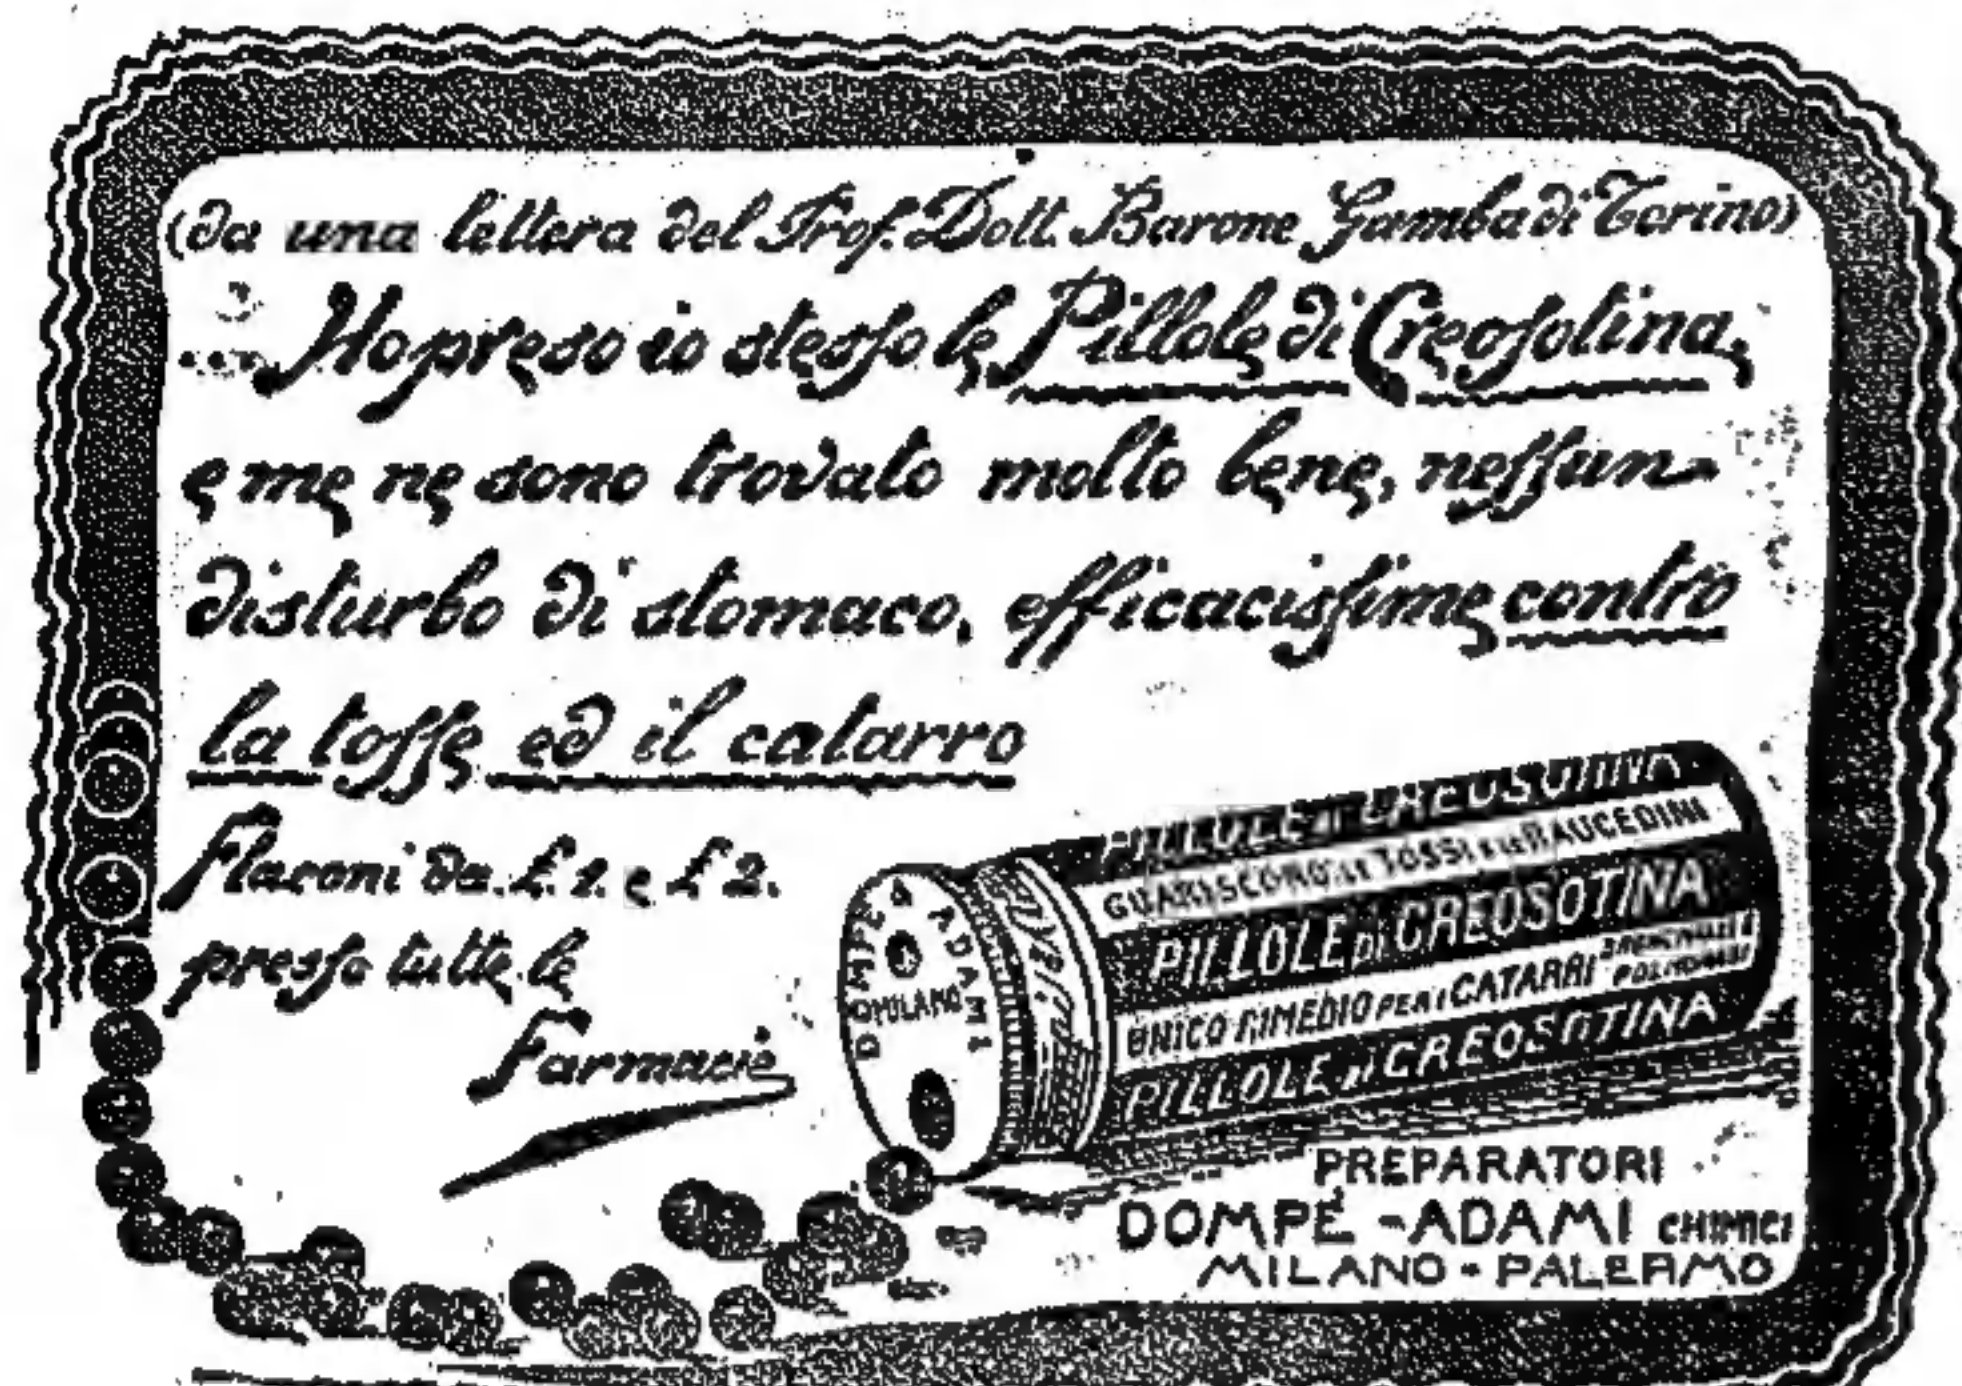 (da una lettera del Prof. Dott. Barone Gamba di Torino)
.... Ho preso io stesso le Pillole di Creosotina,
e me ne sono trovato molto bene, nessun
disturbo di stomaco, efficacissime contro
la tosse ed il catarro
Flaconi da £. 1. e £ 2.
presso tutte le
Farmacie
DOMPÉ & ADAMI
MILANO
PILLOLE DI CREOSOTINA
GUARISCONO LE TOSSI E LE RAUCEDINI
PILLOLE DI CREOSOTINA
UNICO RIMEDIO PER I CATARRI BRONCHIALI E POLMONARI
PILLOLE DI CREOSOTINA
PREPARATORI
DOMPÉ - ADAMI CHIMICI
MILANO - PALERMO